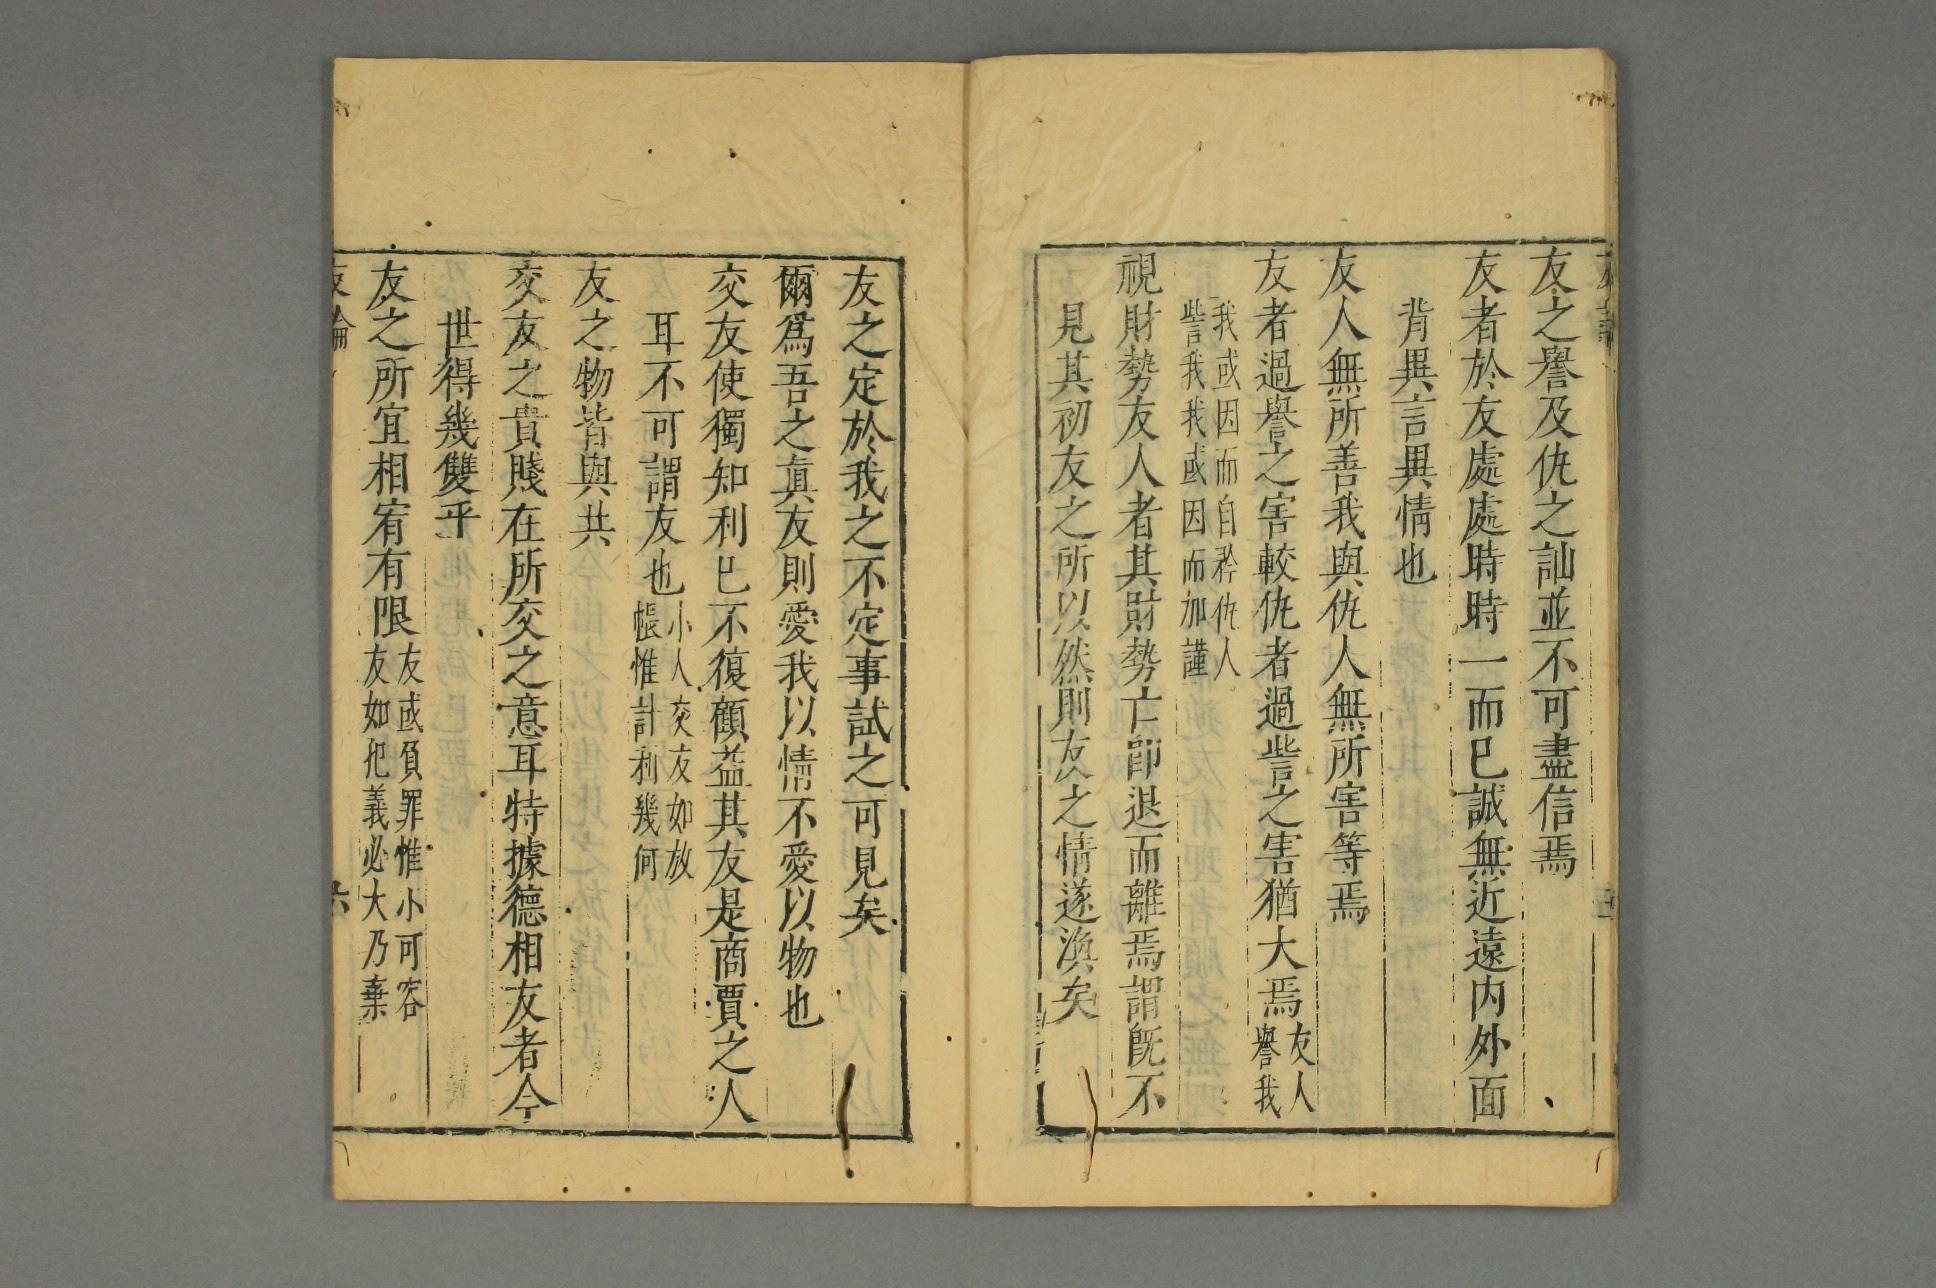 友之譽及仇之訕並不可盡信焉
友者於友處處時時一而已誠無近遠内外面
背異言異情也
友人無所善我與仇人無所害等焉
友者過譽之害較仇者過訾之害猶大焉友人譽我
我或因而自矜仇人
訾我我或因而加謹
視財勢友人者其財勢亡即退而離焉謂旣不
見其初友之所以然則友之情遂渙矣
友之定於我之不定事試之可見矣
爾爲吾之眞友則愛我以情不愛以物也
交友使獨知利已不復顧益其友是商賈之人
耳不可謂友也小人交友如放帳惟計利幾何
友之物皆與共
交友之貴賤在所交之意耳特據德相友者今
世得幾雙乎
友之所宜相宥有限友或負罪惟小可容友如犯義必大乃棄
友論
六